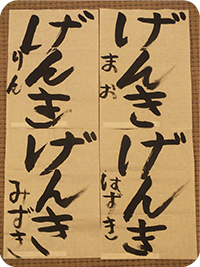 げんき
まお
げんき
りん
げんき
はずき
げんき
みずき